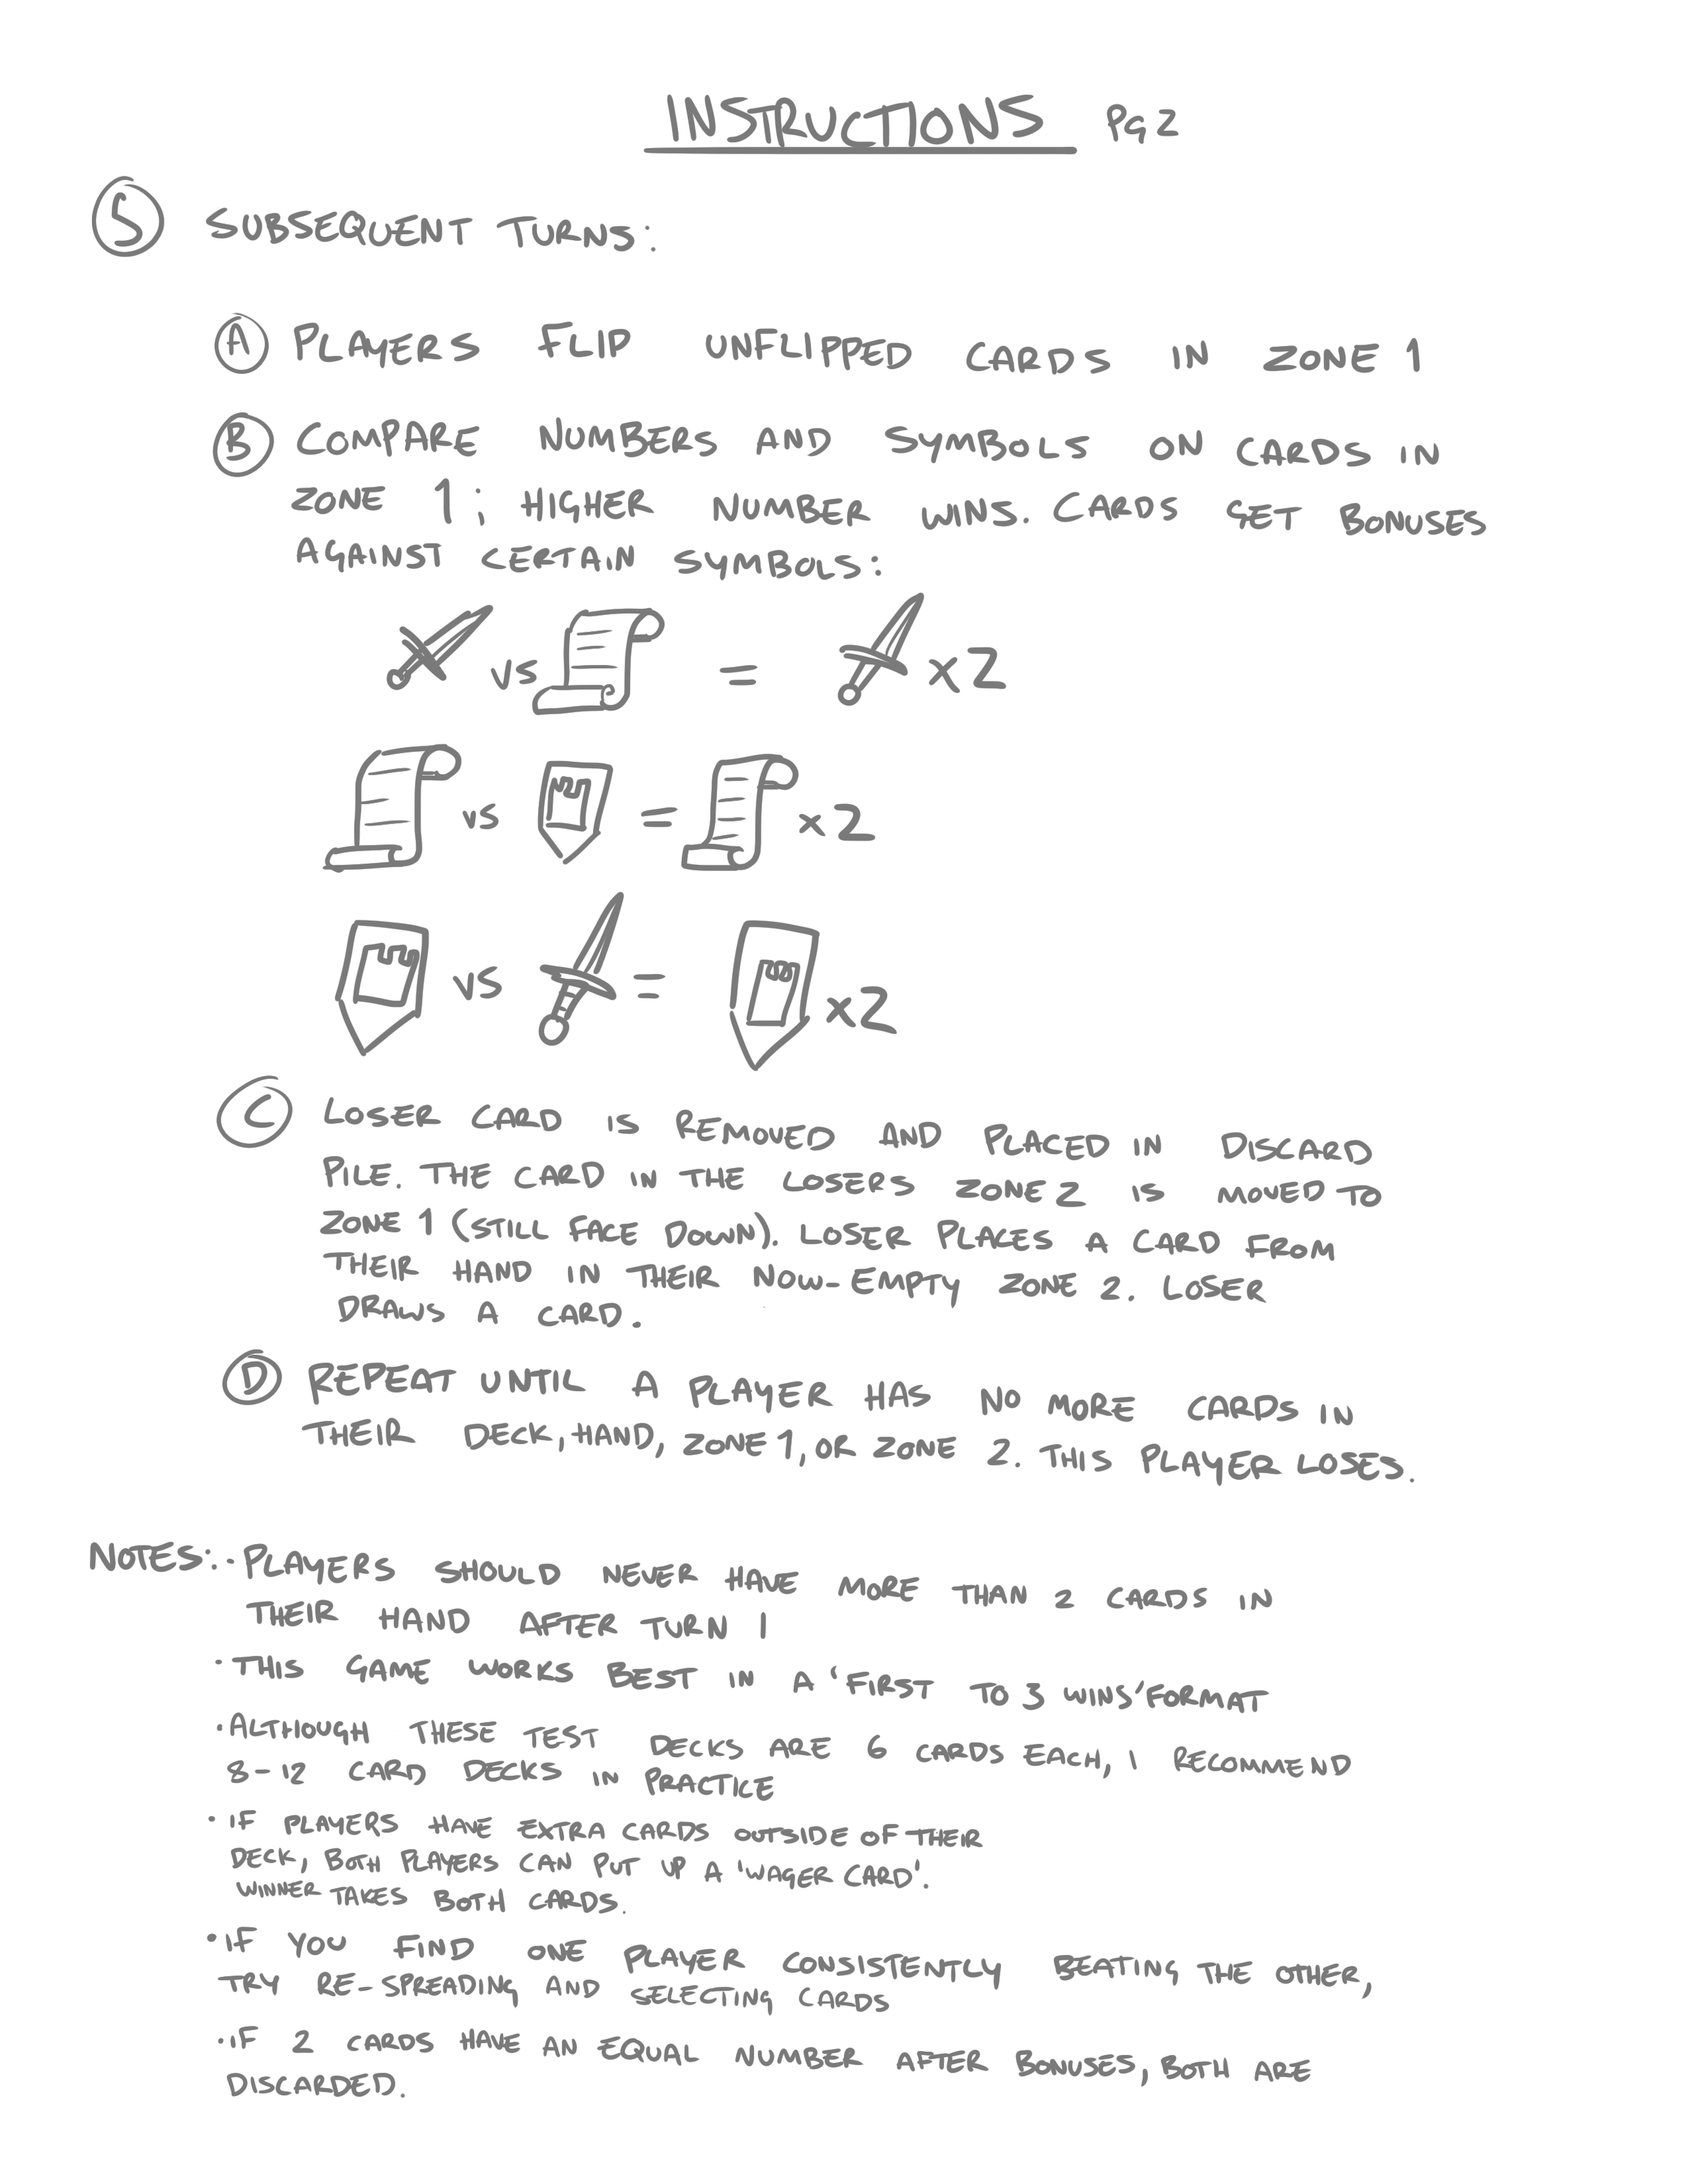 INSTRUCTIONS PG 2
5 SUBSEQUENT TURNS:
A PLAYERS FLIP UNFLIPPED CARDS IN ZONE 1
B COMPARE NUMBERS AND SYMBOLS ON CARDS IN
ZONE 1; HIGHER NUMBER WINS. CARDS GET BONUSES
AGAINST CERTAIN SYMBOLS:
VS = x2
VS = x2
VS = x2
C LOSER CARD IS REMOVED AND PLACED IN DISCARD
PILE. THE CARD IN THE LOSERS ZONE 2 IS MOVED TO
ZONE 1 (STILL FACE DOWN). LOSER PLACES A CARD FROM
THEIR HAND IN THEIR NOW-EMPTY ZONE 2. LOSER
DRAWS A CARD.
D REPEAT UNTIL A PLAYER HAS NO MORE CARDS IN
THEIR DECK, HAND, ZONE 1, OR ZONE 2. THIS PLAYER LOSES.
NOTES: · PLAYERS SHOULD NEVER HAVE MORE THAN 2 CARDS IN
THEIR HAND AFTER TURN 1
· THIS GAME WORKS BEST IN A 'FIRST TO 3 WINS' FORMAT
· ALTHOUGH THESE TEST DECKS ARE 6 CARDS EACH, I RECOMMEND
8-12 CARD DECKS IN PRACTICE
· IF PLAYERS HAVE EXTRA CARDS OUTSIDE OF THEIR
DECK, BOTH PLAYERS CAN PUT UP A 'WAGER CARD'.
WINNER TAKES BOTH CARDS.
· IF YOU FIND ONE PLAYER CONSISTENTLY BEATING THE OTHER,
TRY RE-SPREADING AND SELECTING CARDS
· IF 2 CARDS HAVE AN EQUAL NUMBER AFTER BONUSES, BOTH ARE
DISCARDED.